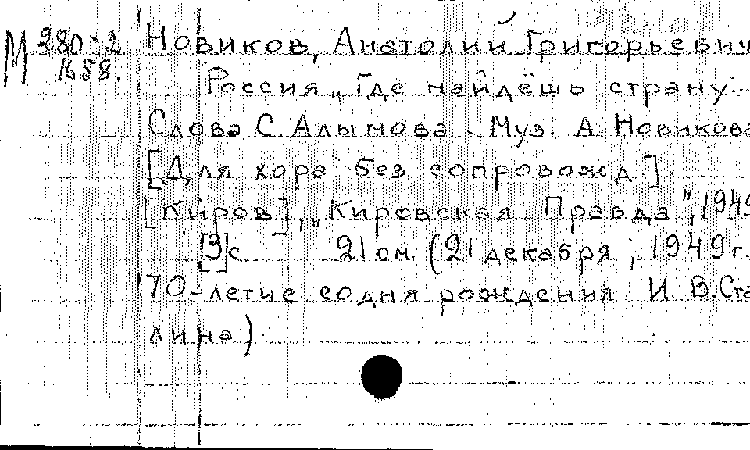 М 280-2 Новиков, Анатолий Григорьевич
1658. Россия, где найдёшь страну
Слова С. Алымова. Муз. А. Новикова
[Для хора без сопровожд.]
[Киров], "Кировская Правда", 1949
[3]с 21 см. (21 декабря, 1949 г.
70-летие со дня рождения И.В.Ста
лина)